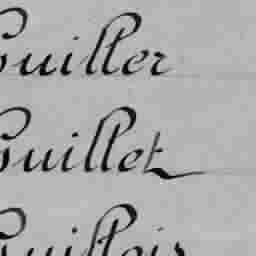 Guiller
Guillet
Guillois